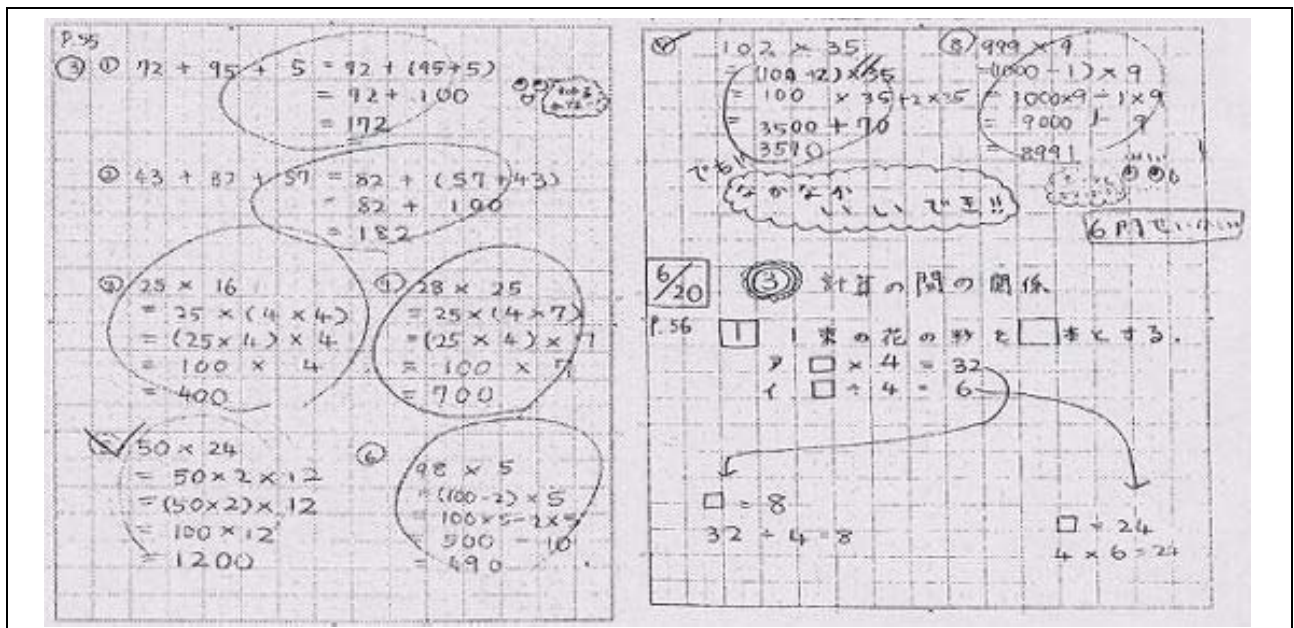 P.55
③ ① 72 + 95 + 5 = 92 + (95+5)
= 92 + 100
= 172
② 43 + 82 + 57 = 82 + (57+43)
= 82 + 100
= 182
③ 25 × 16
= 25 × (4 × 4)
= (25×4) × 4
= 100 × 4
= 400
④ 28 × 25
= 25×(4×7)
= (25 × 4) × 7
= 100 × 7
= 700
⑤ 50 × 24
= 50×2×12
= (50×2)×12
= 100×12
= 1200
⑥ 98 × 5
= (100-2) × 5
= 100×5-2×5
= 500 - 10
= 490
102 × 35
= (100+2)×35
= 100 × 35+2×35
= 3500 + 70
3570
⑧ 999 × 9
=(1000-1) × 9
= 1000×9-1×9
= 9000 - 9
= 8991
でも!!
なかなかいいでき!!
6/20 ③ 計算の間の関係
P.56 1 1束の花の数を□本とする.
ア □ × 4 = 32
イ □ ÷ 4 = 6
□ = 8
32 ÷ 4=8
□ = 24
4 × 6=24